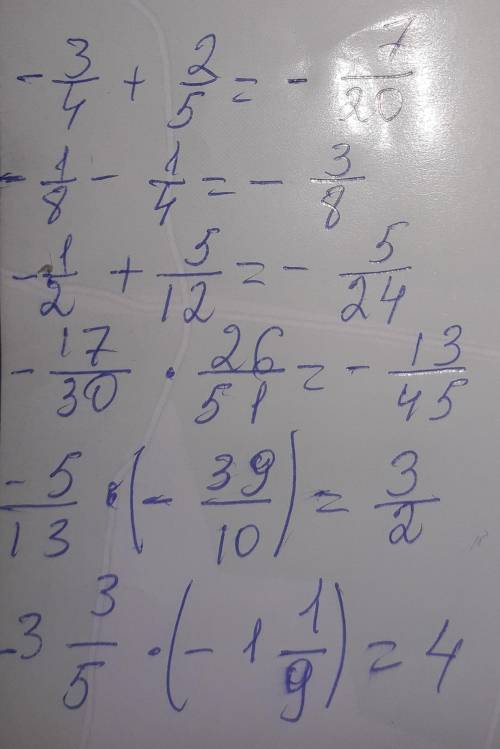 -3/4 + 2/5 = -7/20
-1/8 - 1/4 = -3/8
-1/2 + 5/12 = -5/24
-17/30 · 26/51 = -13/45
-5/13 · (-39/10) = 3/2
-3 3/5 · (-1 1/9) = 4